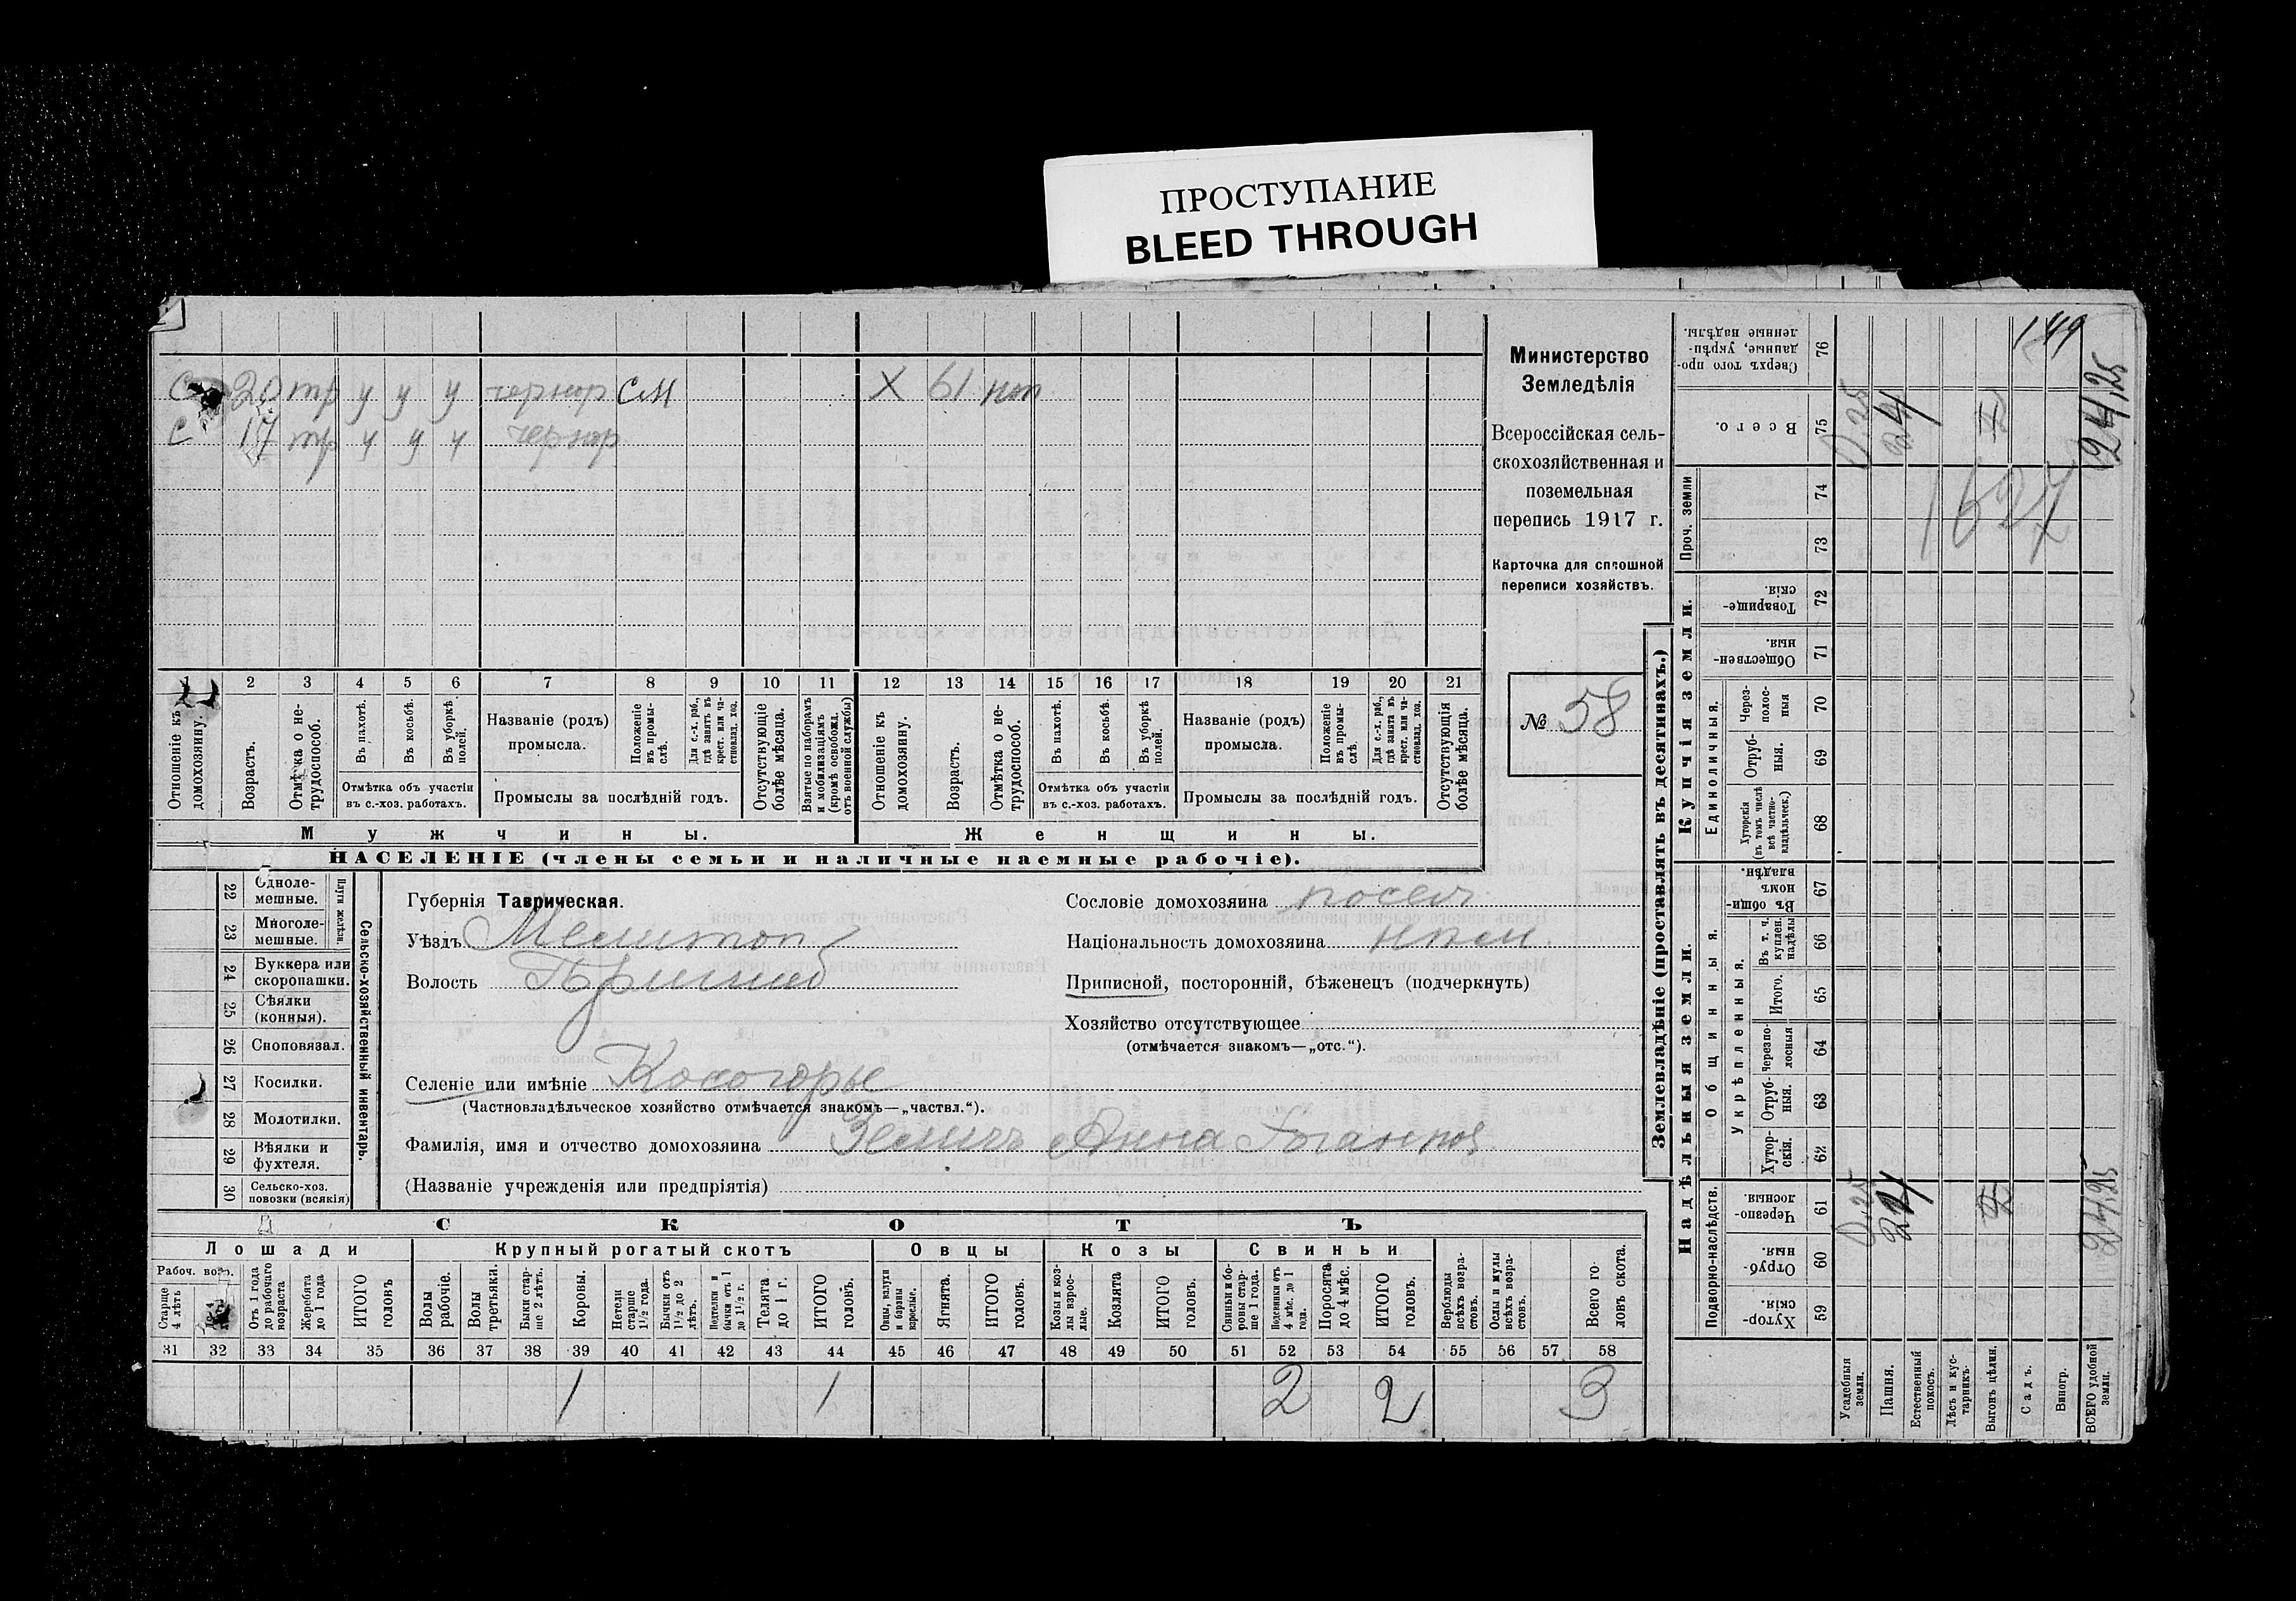 ПРОСТУПАНИЕ
BLEED THROUGH
149
С 20 тр у у у чернор СМ Х 61 нтр
С 17 тр у у у чернор
1 2 3 4 5 6 7 8 9 10 11 12 13 14 15 16 17 18 19 20 21
Отношеніе къ домохозяину.
Возрастъ.
Отмѣтка о не-трудоспособ.
Въ пахотѣ.
Въ косьбѣ.
Въ уборкѣ полей.
Отмѣтка объ участіи
въ с.-хоз. работахъ.
Названіе (родъ)
промысла.
Положеніе въ промы-слѣ.
Для с.-х. раб., гдѣ занятъ въ крест. или ча-стновлад. хоз.
Промыслы за послѣдній годъ.
Отсутствующіе болѣе мѣсяца.
Взятые по наборамъ и мобилизаціямъ (кромѣ освобожд. отъ военной службы)
Отношеніе къ домохозяину.
Возрастъ.
Отмѣтка о не-трудоспособ.
Въ пахотѣ.
Въ косьбѣ.
Въ уборкѣ полей.
Отмѣтка объ участіи
въ с.-хоз. работахъ.
Названіе (родъ)
промысла.
Положеніе въ промы-слѣ.
Для с.-х. раб., гдѣ занята въ крест. или ча-стновлад. хоз.
Промыслы за послѣдній годъ.
Отсутствующія болѣе мѣсяца.
Мужчины.
Женщины.
НАСЕЛЕНІЕ (члены семьи и наличные наемные рабочіе).
Министерство
Земледѣлія
Всероссійская сель-
скохозяйственная и
поземельная
перепись 1917 г.
Карточка для сплошной
переписи хозяйствъ.
№ 58
22 Одноле-мешные.
23 Многоле-мешные.
Плуги желѣзн.
24 Буккера или скоропашки.
25 Сѣялки (конныя).
26 Сноповязал.
27 Косилки.
28 Молотилки.
29 Вѣялки и фухтеля.
30 Сельско-хоз. повозки (всякія)
Сельско-хозяйственный инвентарь.
Губернія Таврическая.
Уѣздъ Мелитоп
Волость Пришиб
Селеніе или имѣніе Косогорье
(Частновладѣльческое хозяйство отмѣчается знакомъ—„частвл.“).
Фамилія, имя и отчество домохозяина Анна
(Названіе учрежденія или предпріятія)
Сословіе домохозяина посел
Національность домохозяина
Приписной, посторонній, бѣженецъ (подчеркнуть)
Хозяйство отсутствующее
(отмѣчается знакомъ—„отс.“).
СКОТЪ
Лошади
Крупный рогатый скотъ
Овцы
Козы
Свиньи
Рабоч. возр.
Старше 4 лѣтъ
Отъ 1 года до рабочаго возраста
Жеребята до 1 года
ИТОГО головъ
Волы рабочіе.
Волы третьяки.
Быки стар-ше 2 лѣтъ.
Коровы.
Нетели старше 1½ года.
Бычки отъ 1½ до 2 лѣтъ.
Подтелки и бычки отъ 1 до 1½ г.
Телята до 1 г.
ИТОГО головъ.
Овцы, валухи и бараны взрослые.
Ягнята.
ИТОГО головъ.
Козы и коз-лы взрос-лые.
Козлята
ИТОГО головъ.
Свиньи и бо-ровы стар-ше 1 года.
Подсвинки отъ 4 мѣс. до 1 года.
Поросята до 4 мѣс.
ИТОГО головъ.
Верблюды всѣхъ возра-стовъ.
Ослы и мулы всѣхъ возра-стовъ.
Всего го-ловъ скота.
31 32 33 34 35 36 37 38 39 40 41 42 43 44 45 46 47 48 49 50 51 52 53 54 55 56 57 58
1 1 2 2 3
Землевладѣніе (проставлять въ десятинахъ.)
Купчія земли.
Надѣльныя земли.
76 Сверхъ того про-данные, укрѣп-ленные надѣлы.
75 Всего. 0,25 24 24,25
Проч. земли
74
73
1627
72 Товарище-скія.
71 Обществен-ныя.
Единоличныя.
70 Через-полос-ныя
69 Отруб-ныя.
68 Хуторскія (въ томъ числѣ всѣ частно-владѣльческ.)
Общинныя.
67 Въ общин-номъ владѣн.
Укрѣпленныя.
66 Въ т. ч. куплен. надѣлы
65 Итого.
64 Черезпо-лосныя
63 Отруб-ныя.
62 Хутор-скія.
Подворно-наслѣдств.
61 Черезпо-лосныя. 0,25 24 24,25
60 Отруб-ныя.
59 Хутор-скія.
Усадебныя земли.
Пашня.
Естественный покосъ.
Лѣсъ и кус-тарникъ.
Выгонъ цѣлин.
Садъ.
Виногр.
ВСЕГО удобной земли.